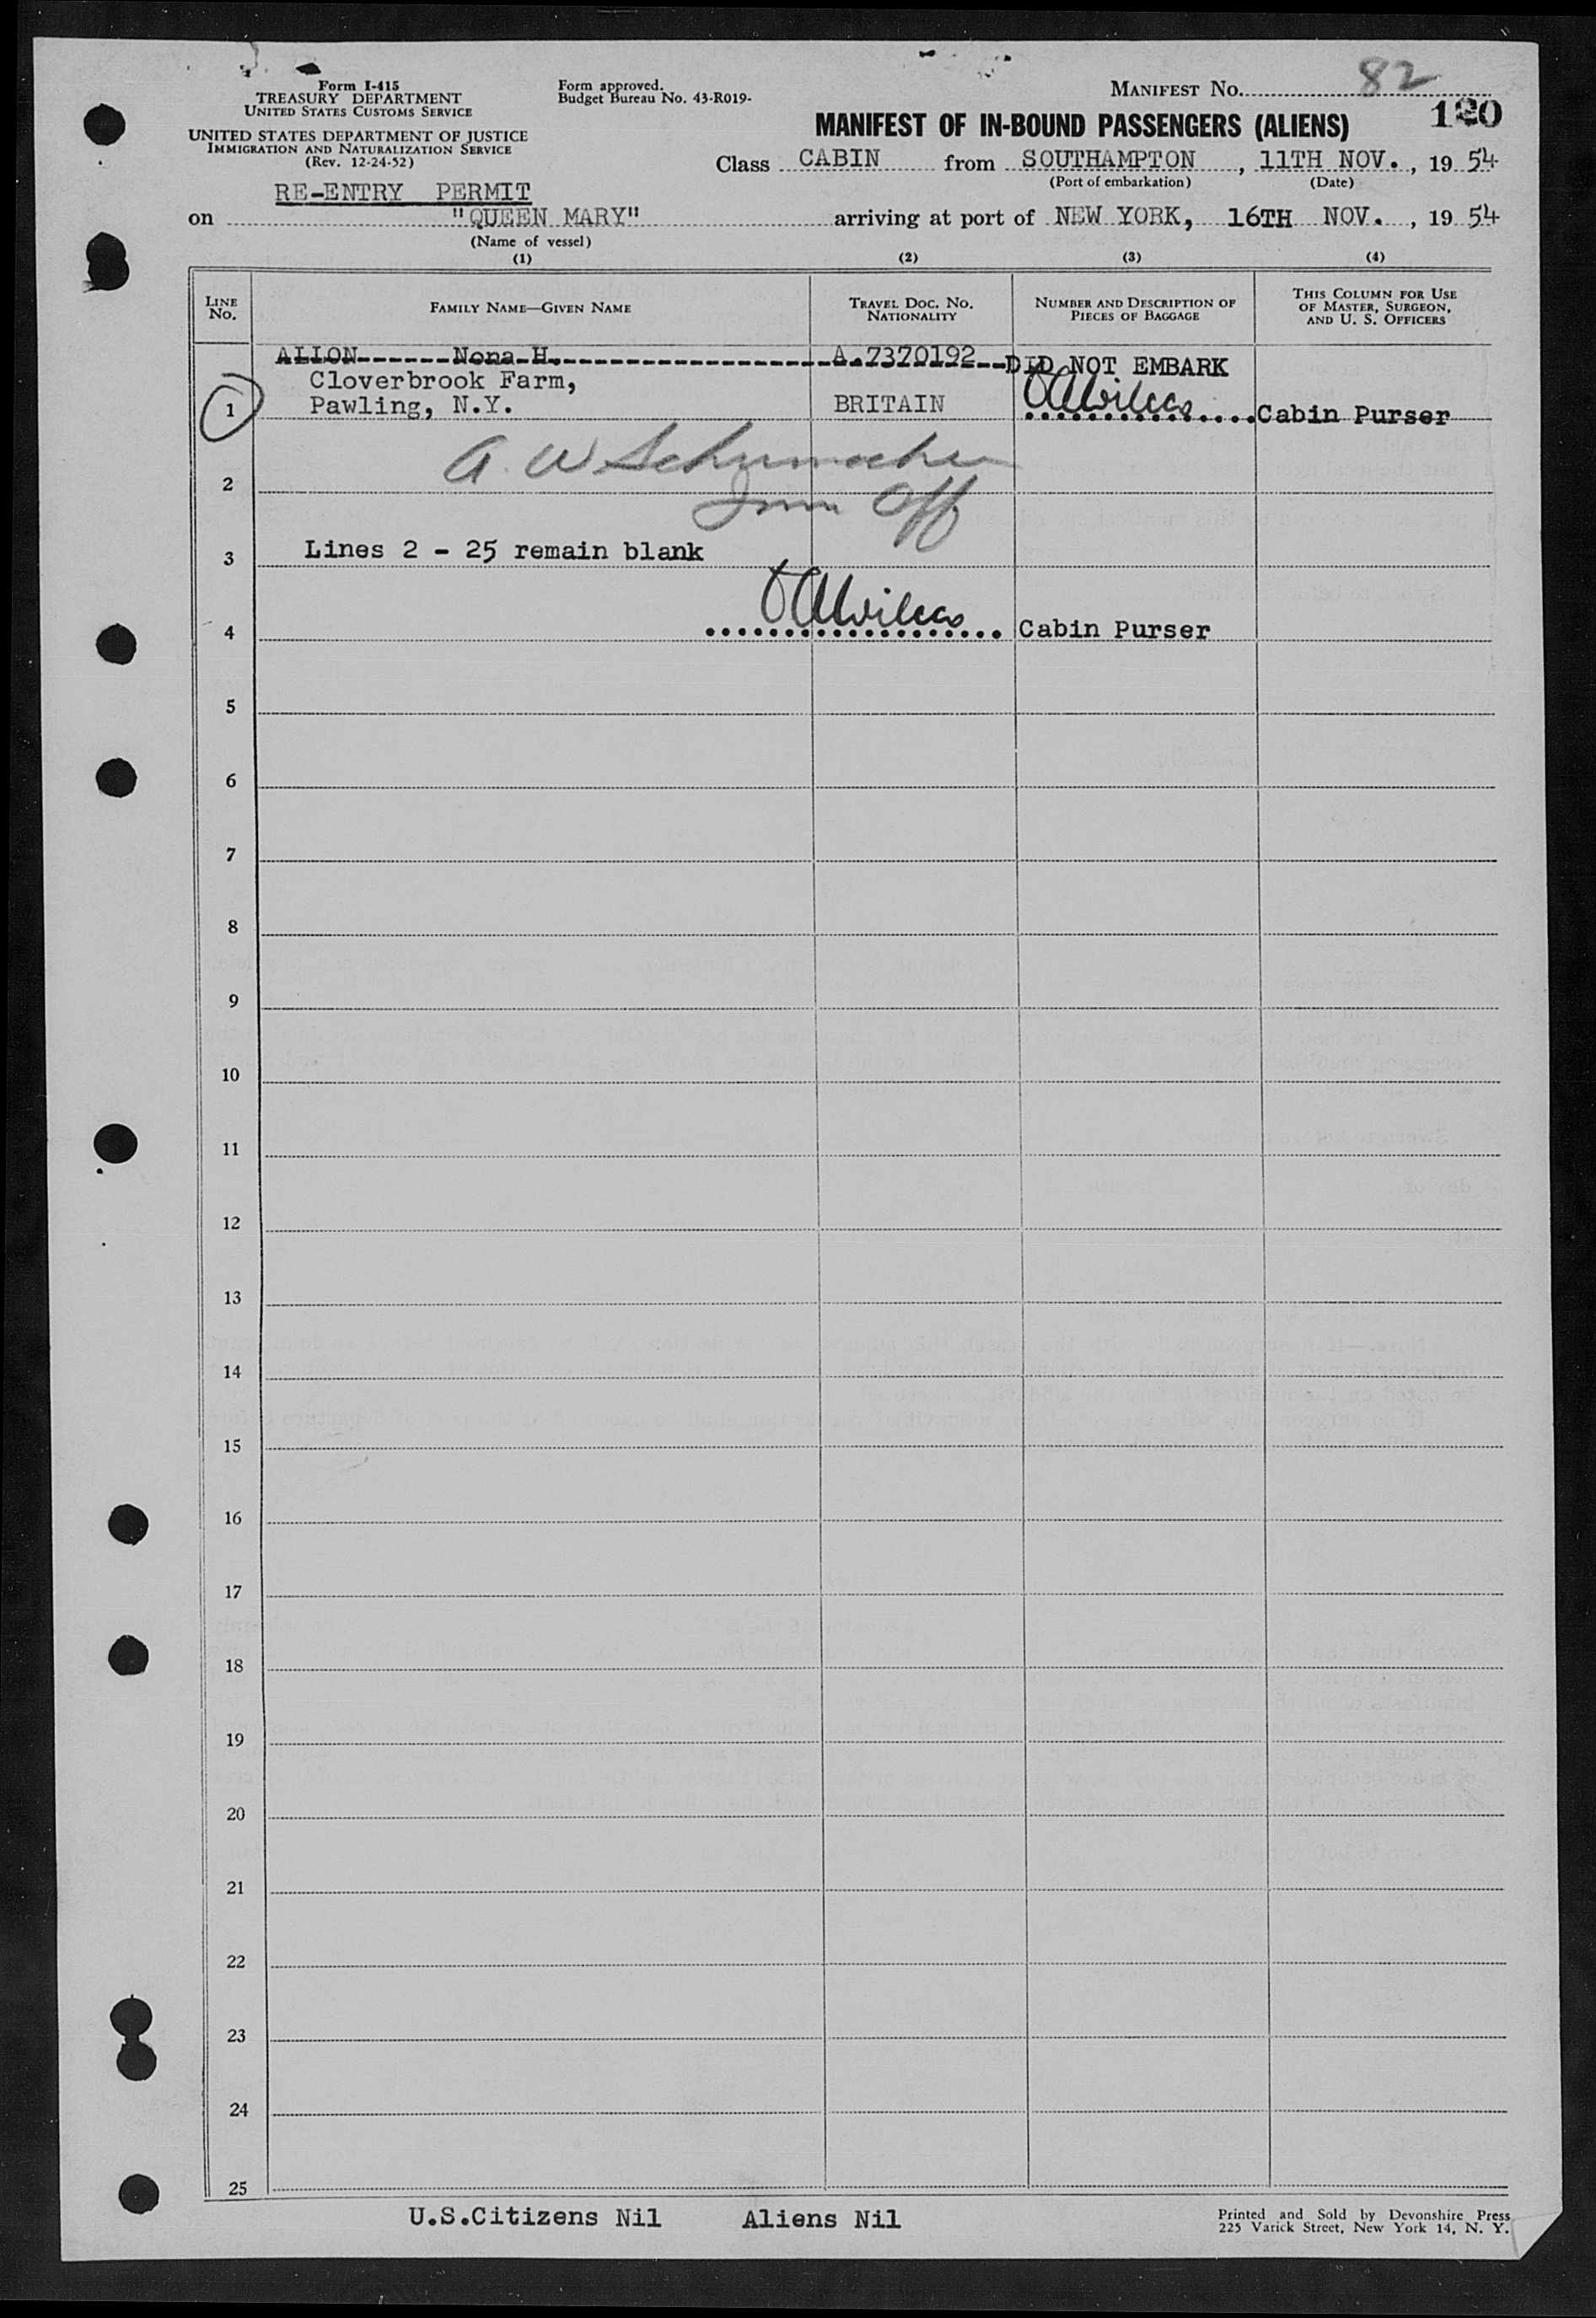 Form I-415
TREASURY DEPARTMENT
UNITED STATES CUSTOMS SERVICE
UNITED STATES DEPARTMENT OF JUSTICE
IMMIGRATION AND NATURALIZATION SERVICE
(Rev. 12-24-52)
Form approved.
Budget Bureau No. 43-R019-
MANIFEST No. 82
120
MANIFEST OF IN-BOUND PASSENGERS (ALIENS)
Class CABIN from SOUTHAMPTON, 11TH NOV., 19 54
(Port of embarkation) (Date)
RE-ENTRY PERMIT
on "QUEEN MARY" arriving at port of NEW YORK, 16TH NOV., 19 54
(Name of vessel)
(1) (2) (3) (4)
LINE NO. FAMILY NAME—GIVEN NAME TRAVEL DOC. NO. NATIONALITY NUMBER AND DESCRIPTION OF PIECES OF BAGGAGE THIS COLUMN FOR USE OF MASTER, SURGEON, AND U. S. OFFICERS
Nona H. A.7370192 DID NOT EMBARK
Cloverbrook Farm,
1 Pawling, N.Y. BRITAIN Cabin Purser
A. W Schumacher
2
Imm Off
3 Lines 2 - 25 remain blank
4 Cabin Purser
5
6
7
8
9
10
11
12
13
14
15
16
17
18
19
20
21
22
23
24
25
U.S.Citizens Nil Aliens Nil
Printed and Sold by Devonshire Press
225 Varick Street, New York 14, N. Y.